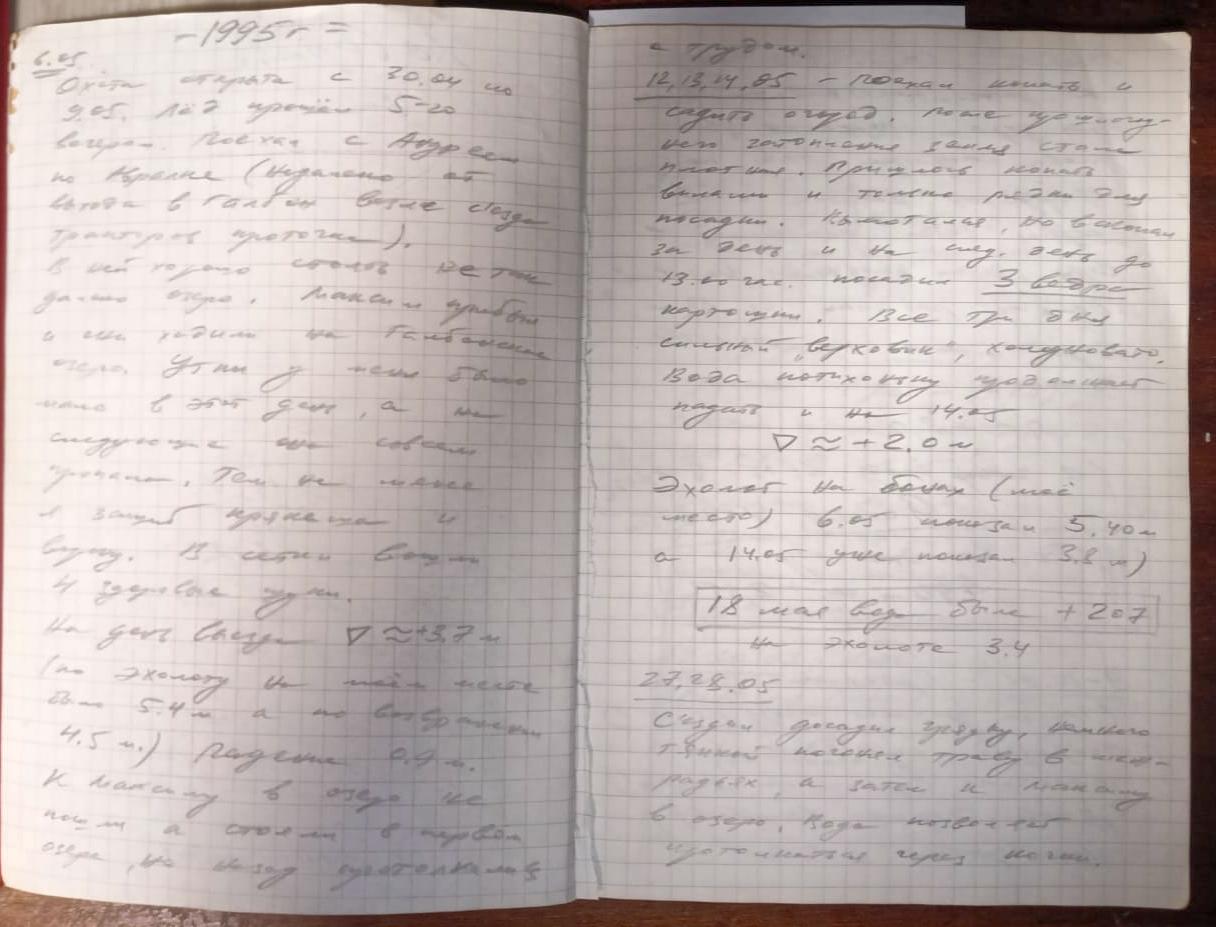 - 1995 г =
6.05.
Охота открыта с 30.04 по
9.05. Лёд прошёл 5-го
вечером. Поехал с Андреем
по (недалеко от
выхода в Галбон возле съезда
тракторов проточка).
В ней хорошо стоять не так
далеко озеро. Максим прибыл
и они ходили на Галбонское
озеро. Утки у меня было
мало в этот день, а на
следующие она совсем
пропала. Тем не менее
я зашиб и
В сетки вошли
4 здоровые щуки.
На день выезда ∇ ≈ +3,7 м
(по эхолоту на моём месте
было 5.4 м а по возвращении
4.5 м.) Падение 0.9 м.
К Максиму в озеро не
пошли а стояли в первом
озере, но назад протолкались
с трудом.
12,13,14.05 - Поехал копать и
садить огород. После прошлогод-
него затопления земля стала
плотная. Пришлось копать
вилами и только рядки для
посадки. Вымотался, но вскопал
за день и на след. день до
13.00 час. посадил 3 ведра
картошки. Все три дня
сильный "верховик", холодновато.
Вода потихоньку продолжает
падать и на 14.05
∇ ≈ +2.0 м
Эхолот на (моё
место) 6.05 показал 5,40 м
а 14.05 уже показал 3.8 м)
18 мая вода была +207
на эхолоте 3.4
27,28.05
Съездил досадил грядку, немного
тяпкой погонял траву в меж-
рядьях, а затем к Максиму
в озеро. Вода позволяет
протолкаться через кочки.